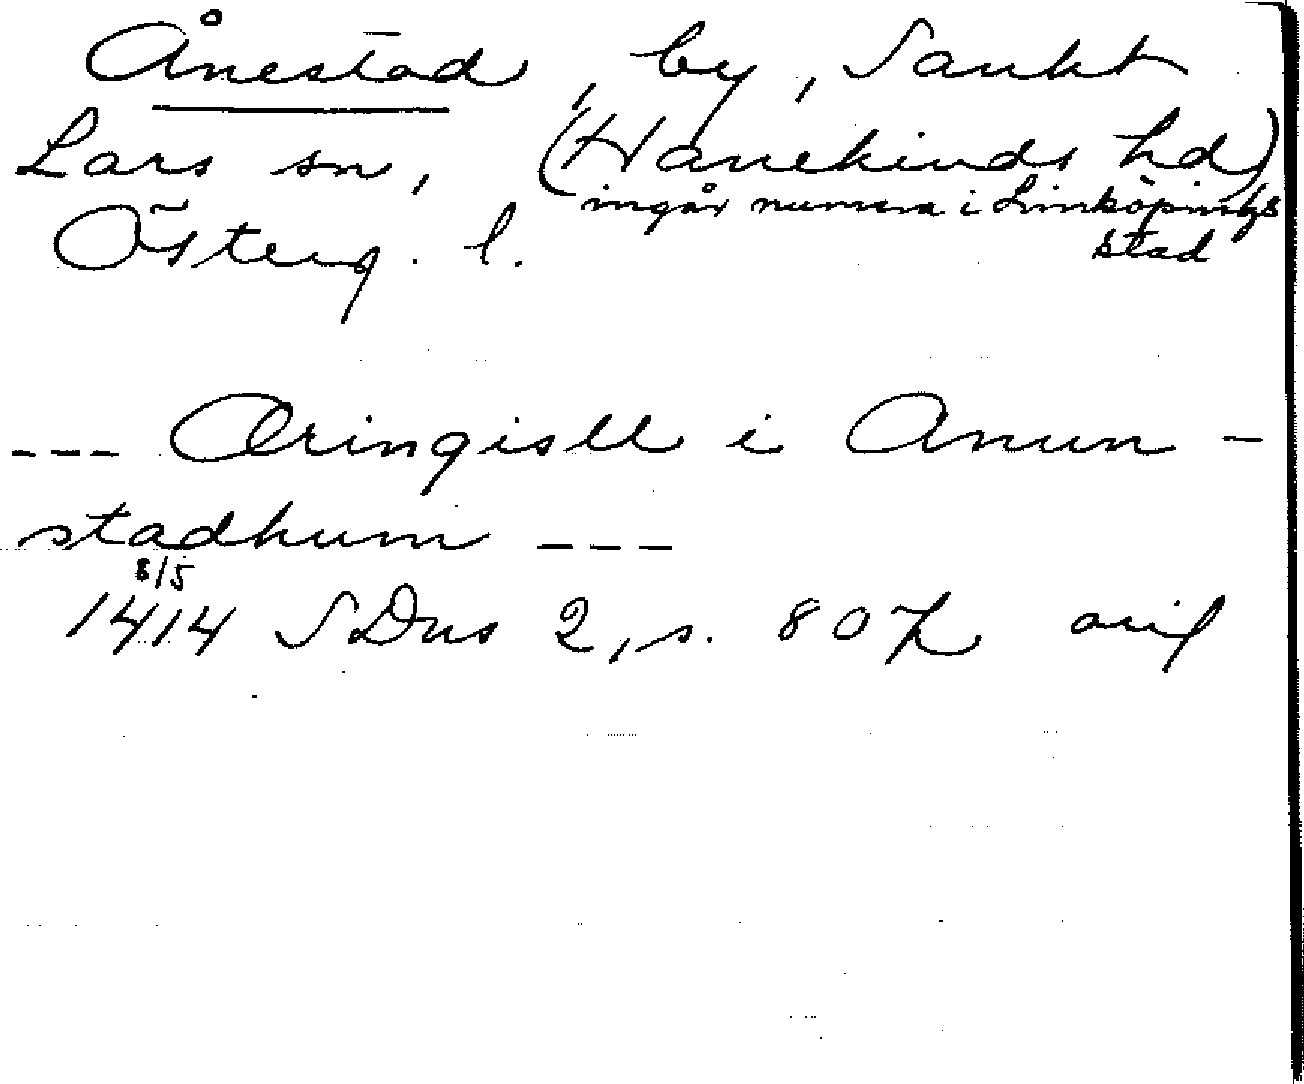 Ånestad, by, Sankt
Lars sn, (Hanekinds hd)
ingår numera i Linköpings
stad
Österg. l.
--- Øringisll i Anun-
stadhum ---
8/5
1414 SDns 2, s. 807 orig